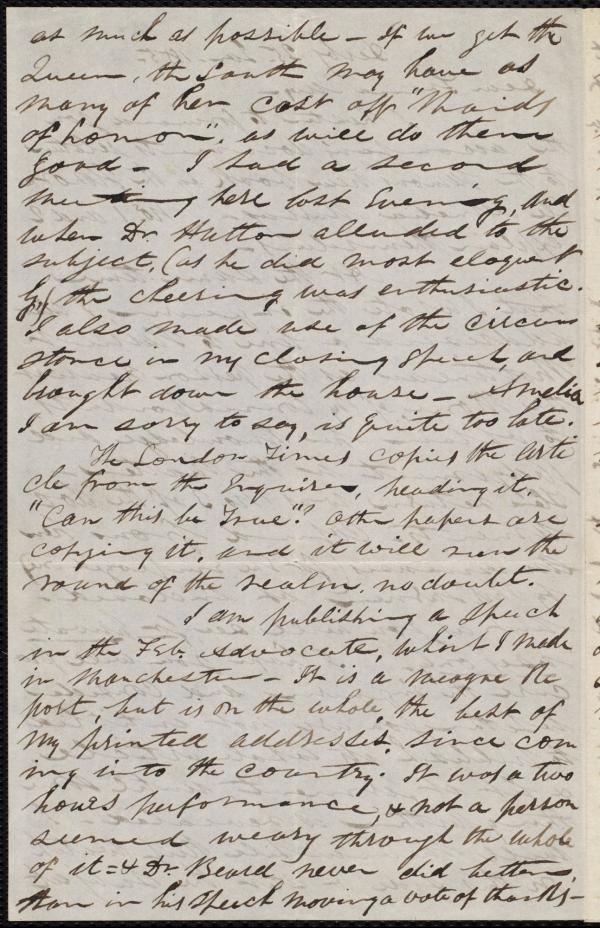 as much as possible - If we get the
Queen, the South may have as
many of her cast off "Maids
of honor", as will do them
good - I had a second
meeting here last Evening, and
when Dr. Hutton alluded to the
subject, (as he did most eloquent
ly,) the cheering was enthusiastic.
I also made use of the circum
stance in my closing speech, and
brought down the house - Amelia
I am sorry to say, is quite too late.
The London Times copies the arti
cle from the Inquirer, heading it,
"Can this be True"? Other papers are
copying it, and it will run the
round of the realm, no doubt.
I am publishing a speech
in the Feb. Advocate, which I made
in Manchester - It is a meagre Re
port, but is on the whole, the best of
my printed addresses, since com
ing into the country. It was a two
hours performance, & not a person
seemed weary through the whole
of it = & Dr. Beard never did better,
than in his speech moving a vote of thanks -